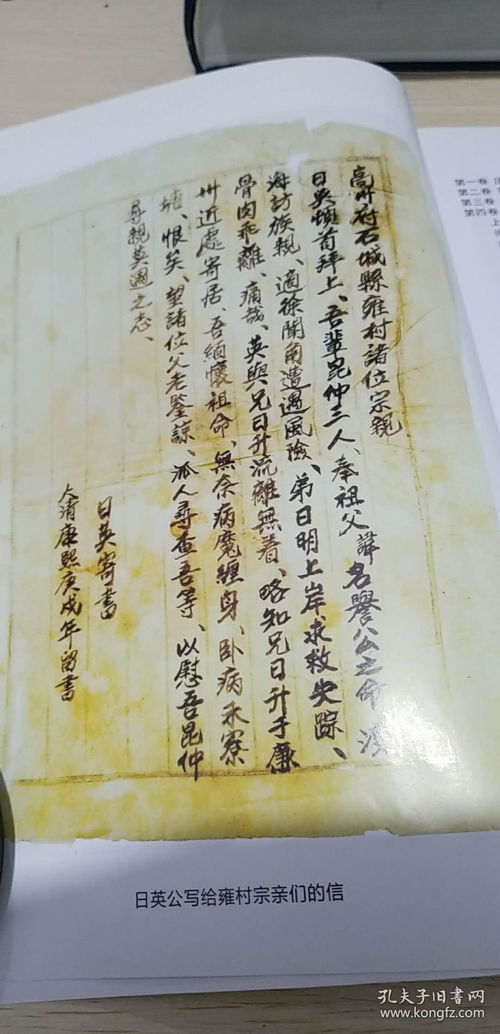 高州府石城縣雍村諸位宗親
日英頓首拜上、吾輩昆仲三人、奉祖父諱名譽公之命渡
海訪族親、適徐聞角遭遇風險、弟日明上岸求救失踪、
骨肉乖離、痛哉、英與兄日升流離無着、略知兄日升于廉
州近處寄居、吾缅懷祖命、無奈病魔纏身、卧病禾寮
塘、恨矣、望諸位父老鑒諒、派人尋查吾等、以慰吾昆仲
尋親英週之志、
日英寄書
大清康熙庚戍年留書
日英公写给雍村宗亲们的信
第一卷
第二卷
第三卷
第四卷
上
孔夫子旧书网
kongfz.com